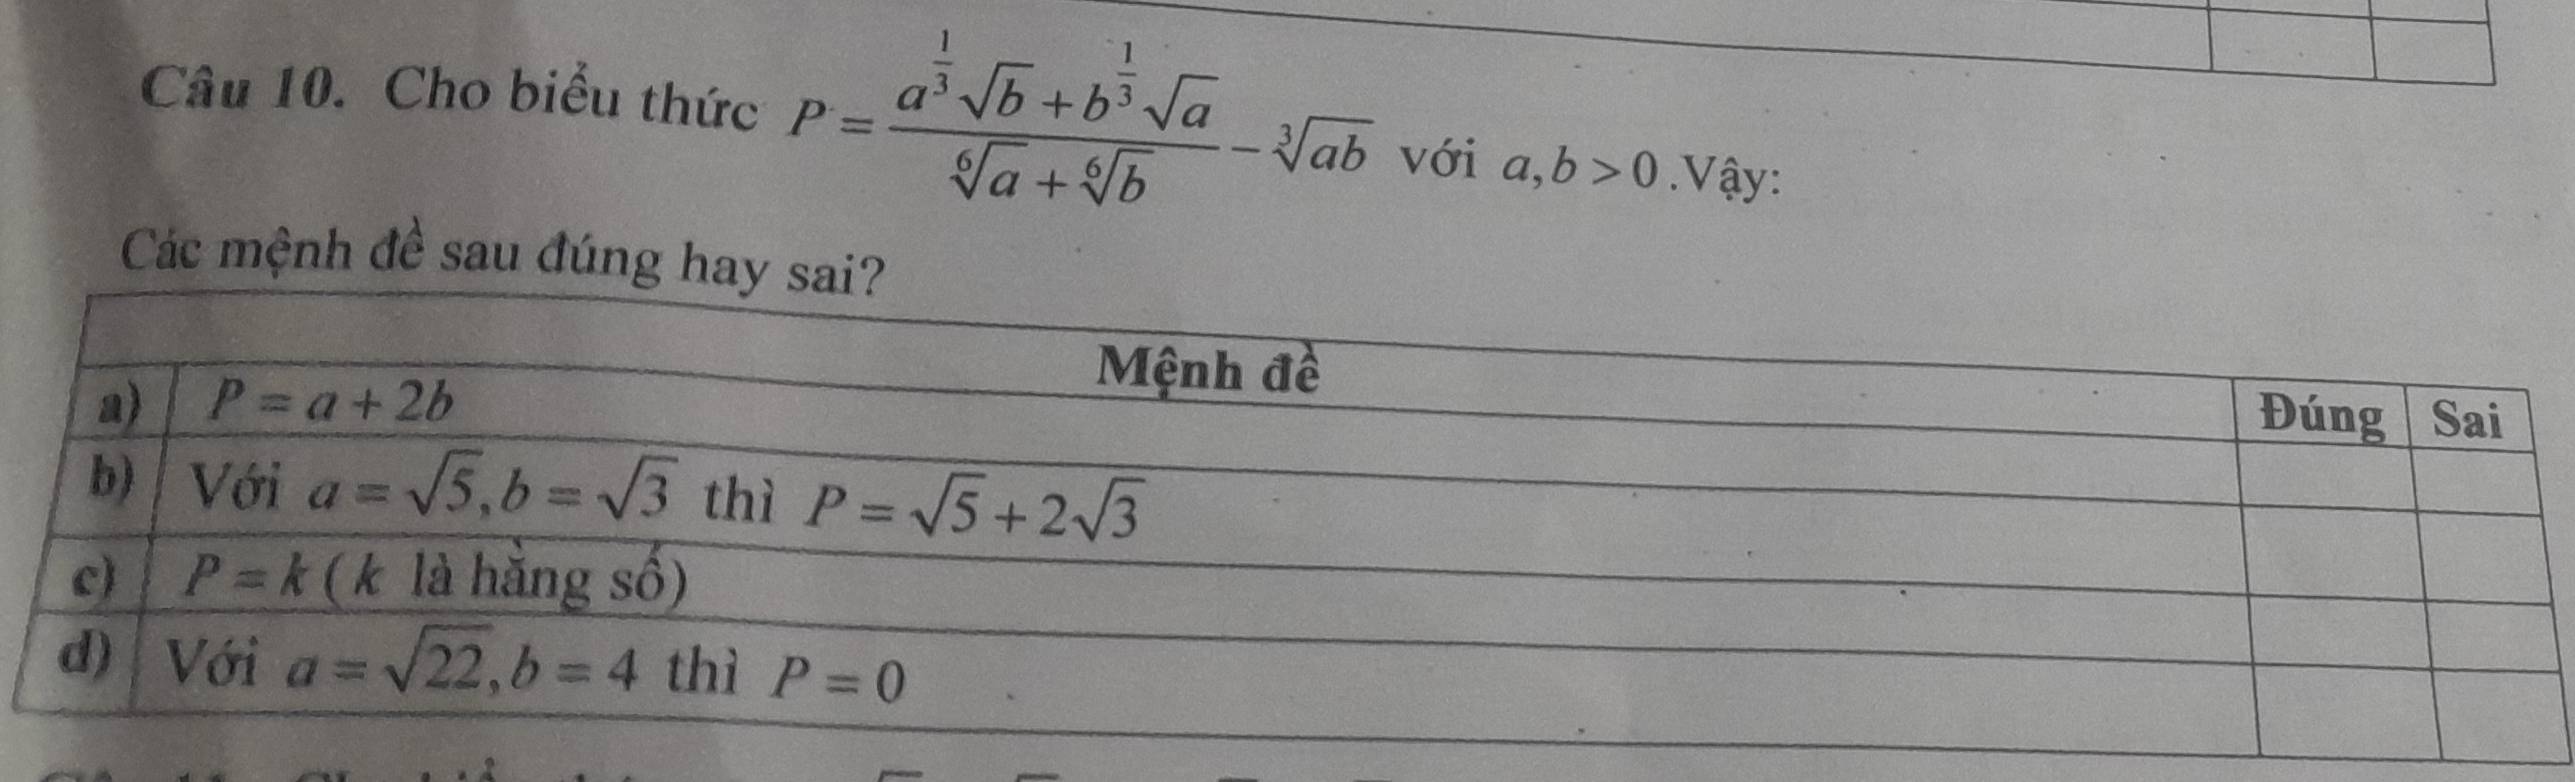 Câu 10. Cho biểu thức P = \frac{a^{\frac{1}{3}}\sqrt{b} + b^{\frac{1}{3}}\sqrt{a}}{\sqrt[6]{a} + \sqrt[6]{b}} - \sqrt[3]{ab} với a,b > 0. Vậy:
Các mệnh đề sau đúng hay sai?
Mệnh đề Đúng Sai
a) P = a + 2b
b) Với a = √5, b = √3 thì P = √5 + 2√3
c) P = k ( k là hằng số)
d) Với a = √22, b = 4 thì P = 0